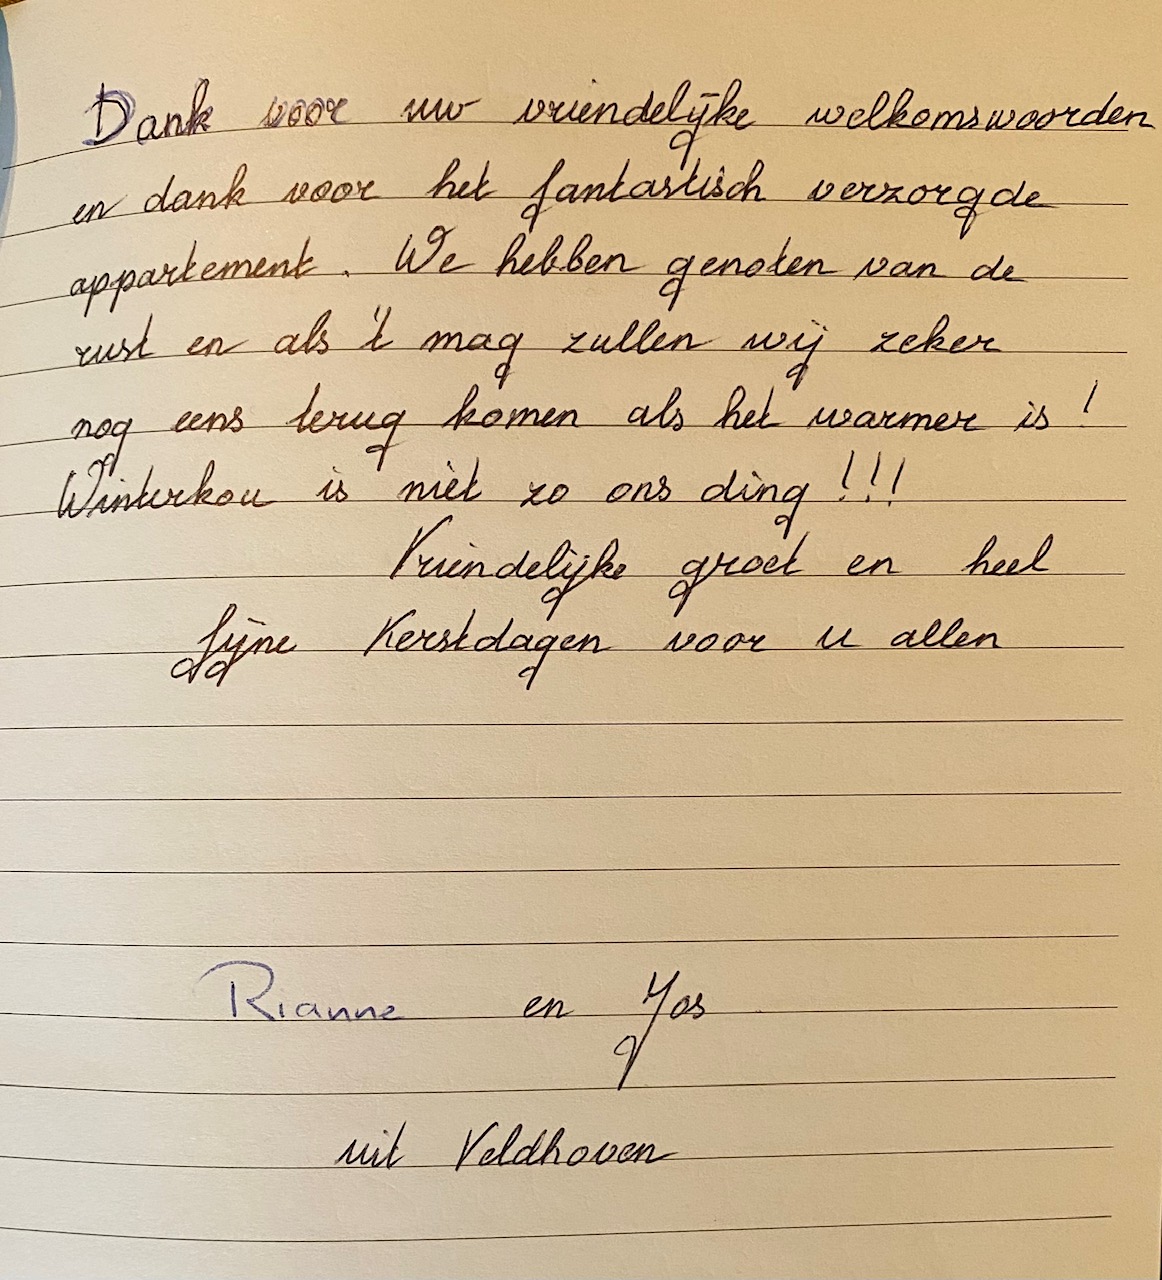 Dank voor uw vriendelijke welkomswoorden
en dank voor het fantastisch verzorgde
appartement. We hebben genoten van de
rust en als 't mag zullen wij zeker
nog eens terug komen als het warmer is!
Winterkou is niet zo ons ding!!!
Vriendelijke groet en heel
fijne Kerstdagen voor u allen
Rianne en Jos
uit Veldhoven